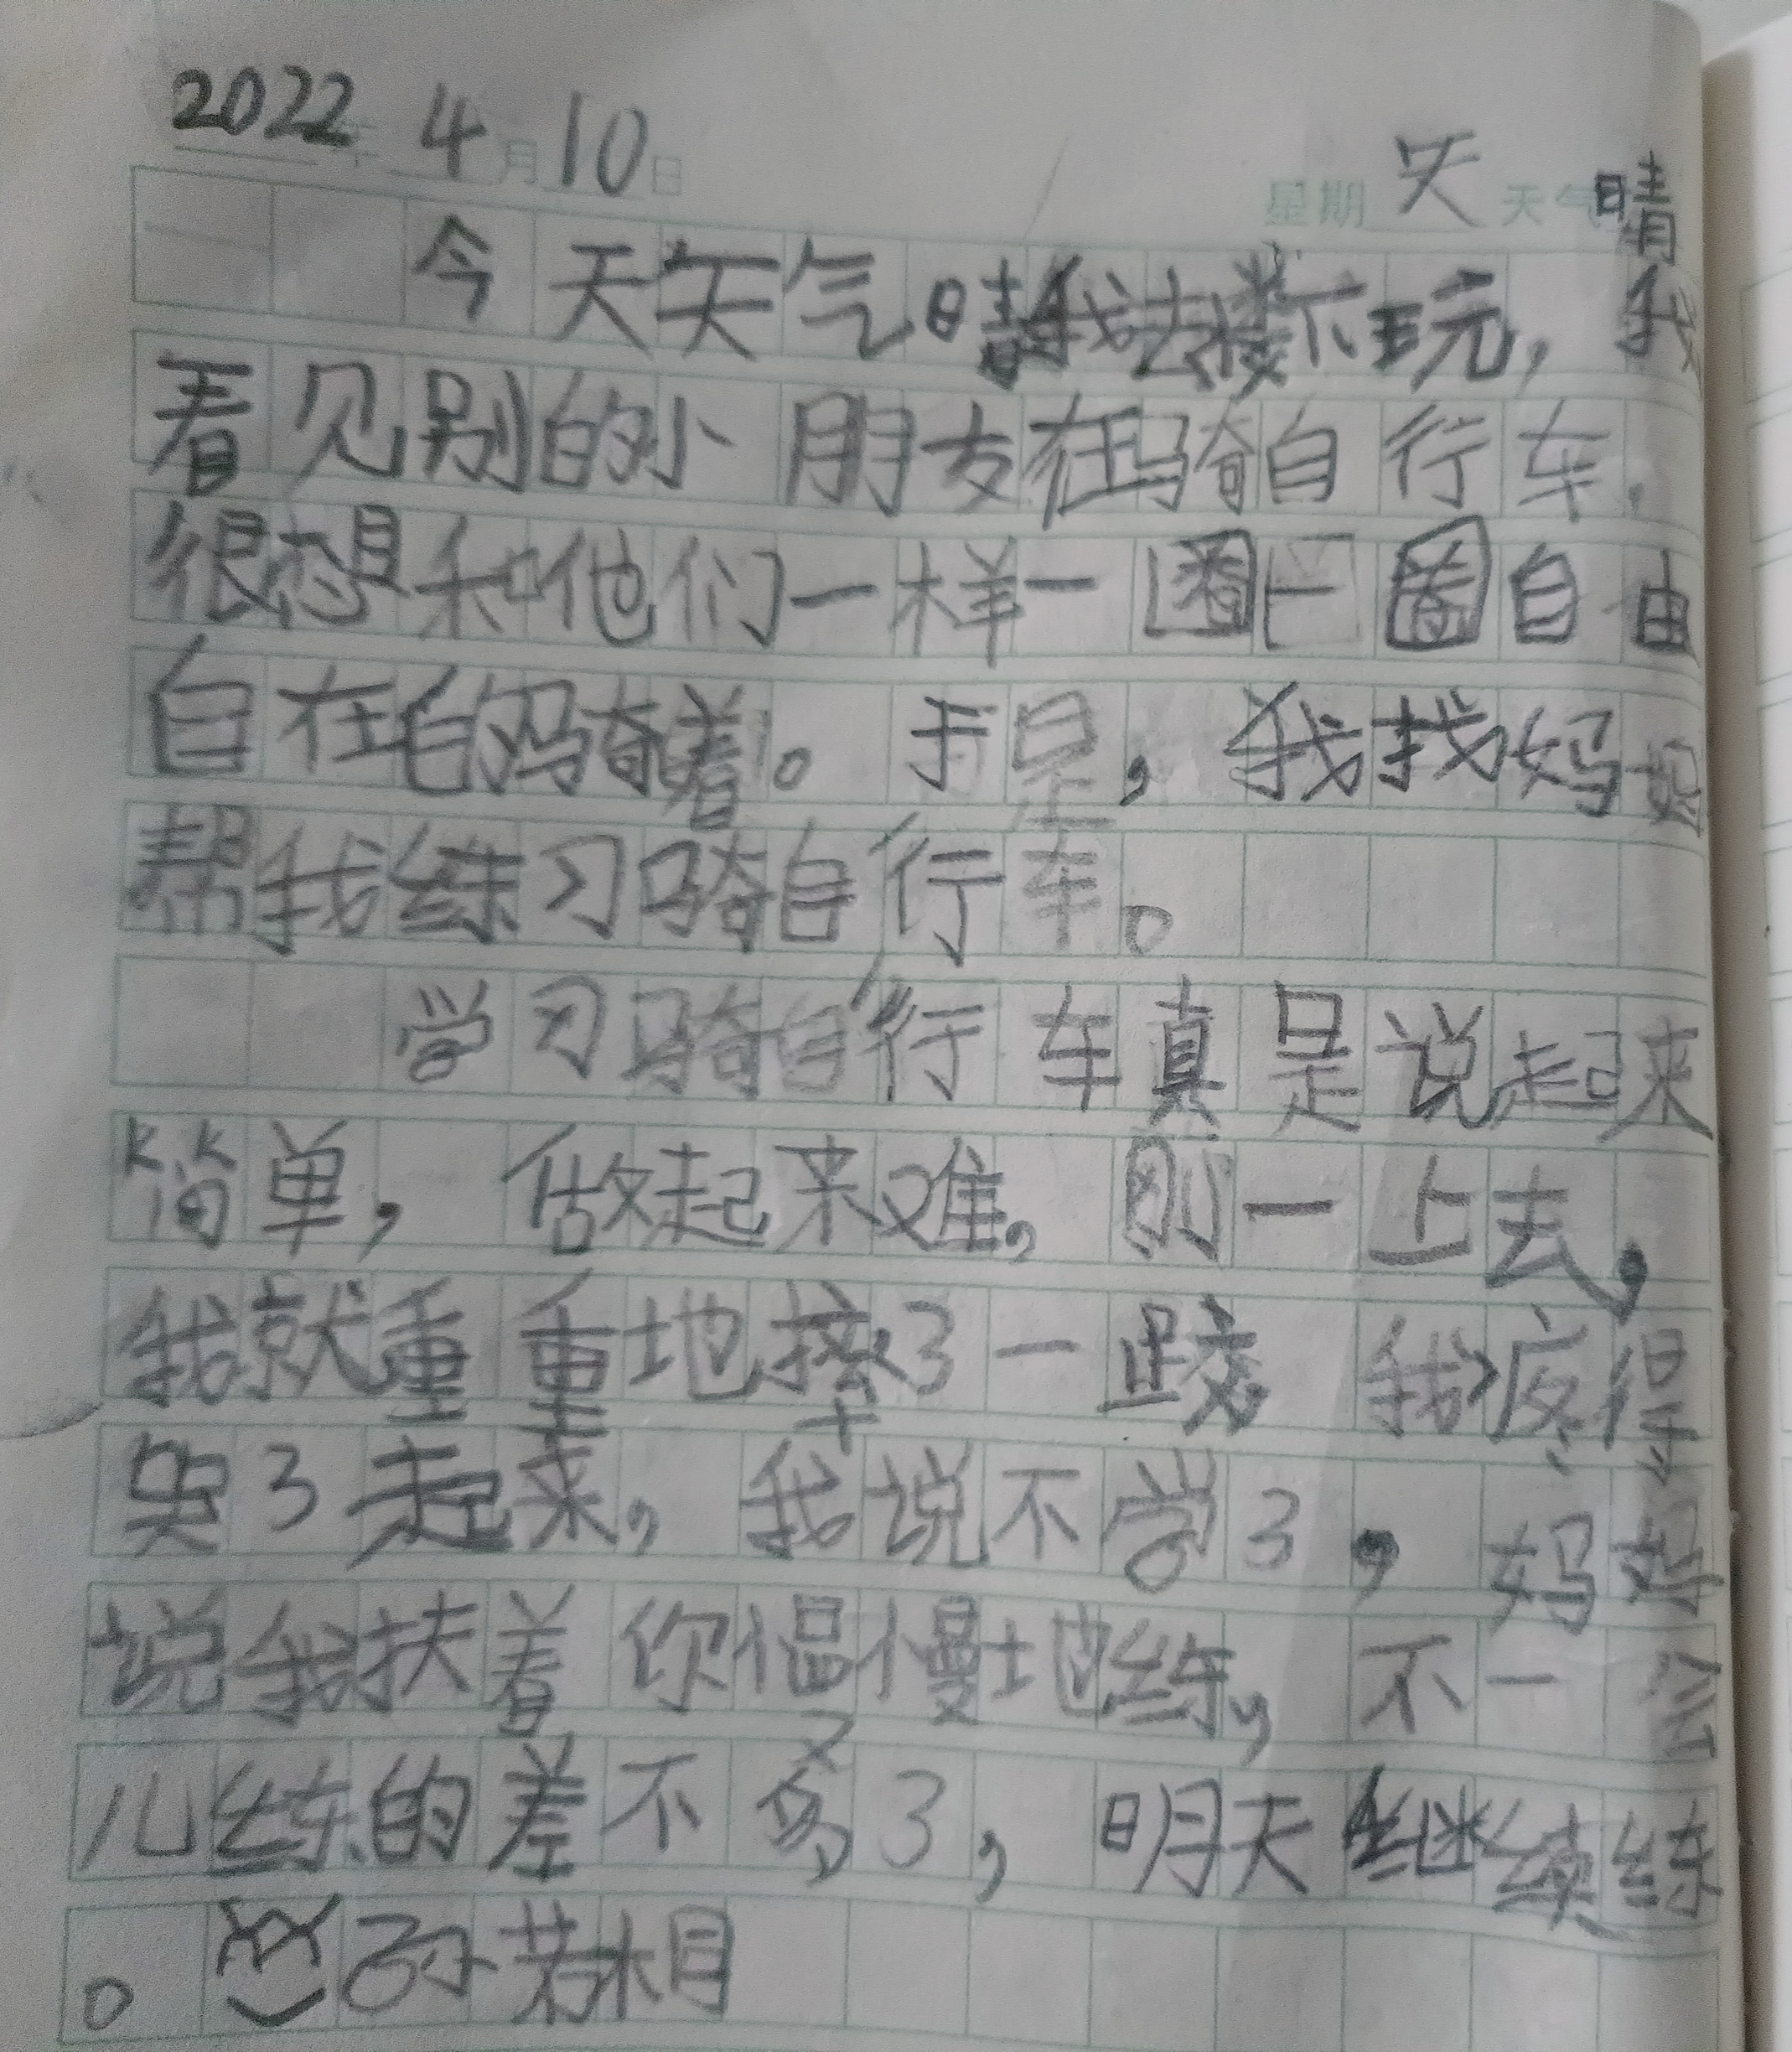 2022年4月10日 星期天 天气晴
今天天气晴我去楼下玩，我
看见别的小朋友在骑自行车，
很想和他们一样一圈一圈自由
自在的骑着。于是，我找妈妈
帮我练习骑自行车。
学习骑自行车真是说起来
简单，做起来难，刚一上去，
我就重重地摔了一跤 我疼得
哭了起来，我说不学了，妈妈
说我扶着你慢慢地练，不一会
儿练的差不多了，明天继续练
。孙若相